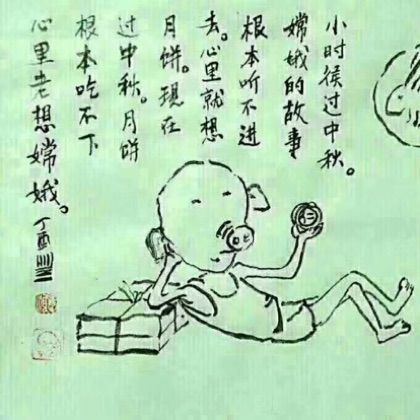 小时侯过中秋。
嫦娥的故事
根本听不进
去。心里就想
月饼。现在
过中秋。月饼
根本吃不下
心里老想嫦娥。
丁酉